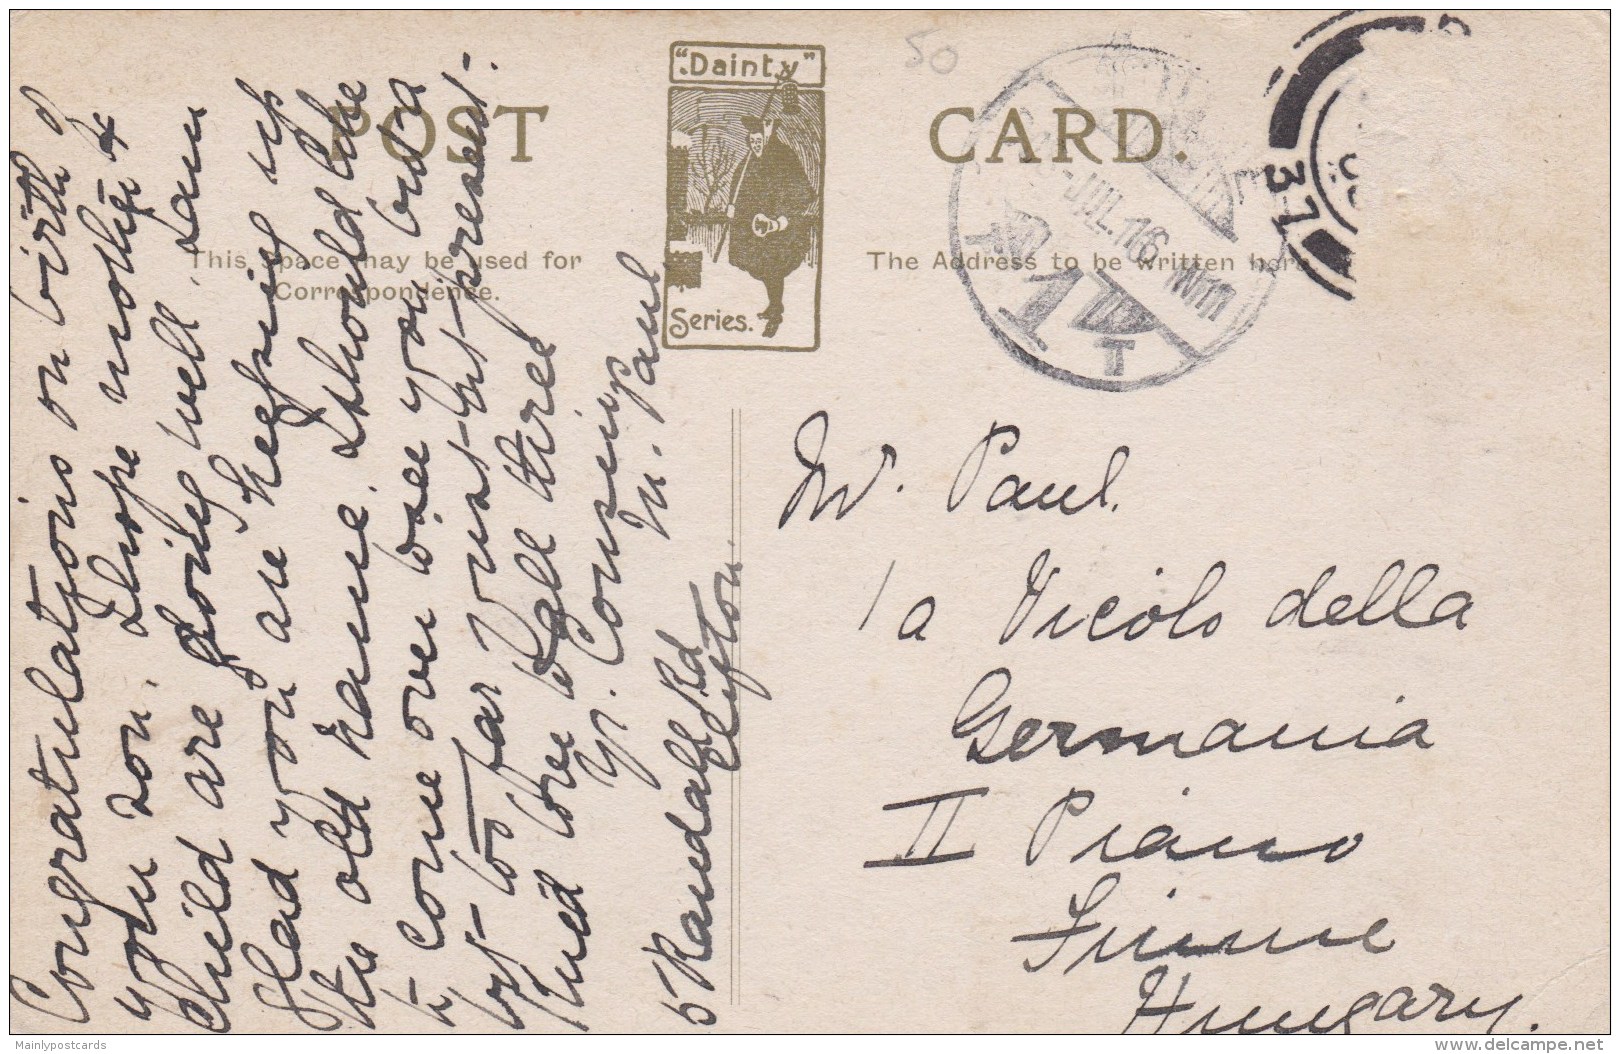 "Dainty"
Series.
POST CARD.
This space may be used for
Correspondence.
The Address to be written here
50
JUL. 11 6
T
37
Congratulations on birth of
your son. I hope mother &
child are going well. I am
glad you are keeping up
the old name. I should like
to come over & see you but a
but
far
kind
Yr. Cousin
M. Paul
5 Randall Rd
Clifton.
Mr. Paul.
1a Vicolo della
Germania
II Piano
Fiume
Hungary.
Mainlypostcards
delcampe.net